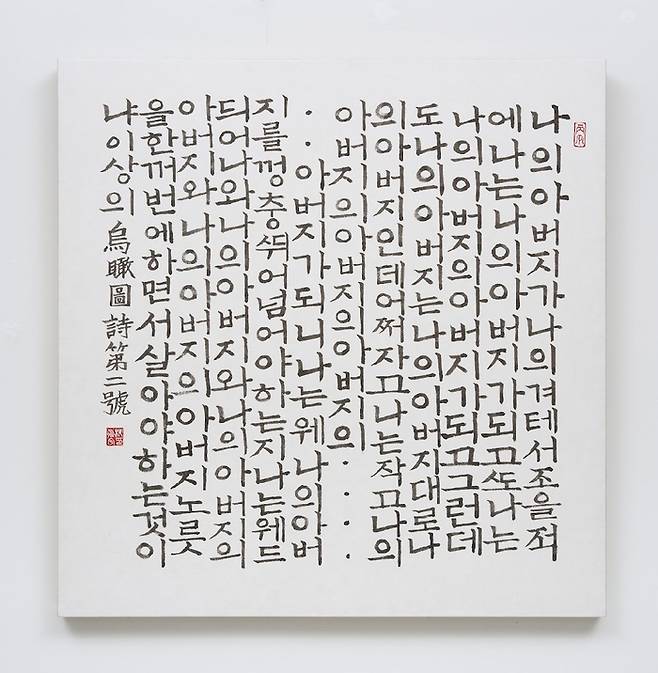 나의아버지가나의겨테서조을적
에나는나의아버지가되고ᄯᅩ나는
나의아버지의아버지가되고그런데
도나의아버지는나의아버지대로나
의아버지인데어쩌자고나는작고나의
아버지의아버지의아버지의····
··아버지가되니나는웨나의아버
지를껑충ᄯᅱ어넘어야하는지나는웨드
듸어나와나의아버지와나의아버지의
아버지와나의아버지의아버지노릇
을한꺼번에하면서살아야하는것이
냐이상의烏瞰圖詩第二號